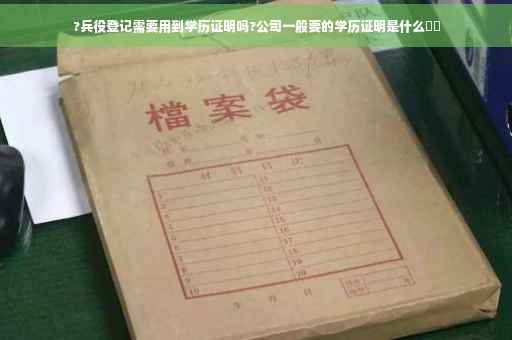 ?兵役登记需要用到学历证明吗?公司一般要的学历证明是什么▯▯
檔案袋
材料目次
1 11
2 12
3 13
4 14
5 15
6 16
7 17
8 18
9 19
10 20
年 月 日